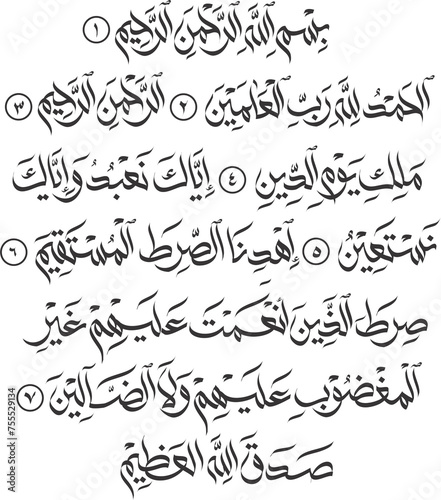 بِسْمِ ٱللَّهِ ٱلرَّحْمَٰنِ ٱلرَّحِيمِ ١
ٱلْحَمْدُ لِلَّهِ رَبِّ ٱلْعَالَمِينَ ٢ ٱلرَّحْمَٰنِ ٱلرَّحِيمِ ٣
مَلِكِ يَوْمِ ٱلدِّينِ ٤ إِيَّاكَ نَعْبُدُ وَإِيَّاكَ
نَسْتَعِينُ ٥ اِهْدِنَا ٱلصِّرَطَ ٱلْمُسْتَقِيمَ ٦
صِرَطَ ٱلَّذِينَ أَنْعَمْتَ عَلَيْهِمْ غَيْرِ
ٱلْمَغْضُوبِ عَلَيْهِمْ وَلَا ٱلضَّآلِّينَ ٧
صَدَقَ ٱللَّهُ ٱلْعَظِيمُ
Adobe Stock | #755529134